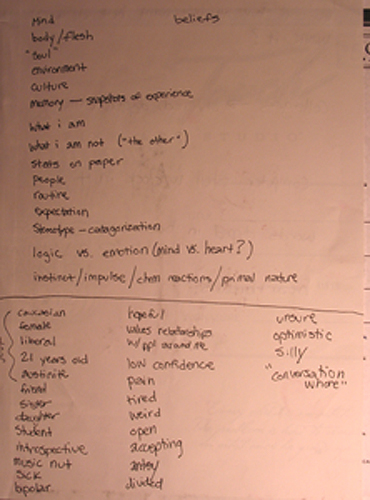 mind
beliefs
body/flesh
"soul"
environment
culture
memory — snapshots of experience
what i am
what i am not ("the other")
stats on paper
people
routine
expectation
stereotype - catagorization
logic vs. emotion (mind vs. heart?)
instinct/impulse/chem reactions/primal nature
caucasian
female
liberal
21 years old
austinite
friend
sister
daughter
student
introspective
music nut
sick
bipolar
hopeful
values relationships
w/ppl around me
low confidence
pain
tired
weird
open
accepting
antsy
divided
unsure
optimistic
silly
"conversation
whore"